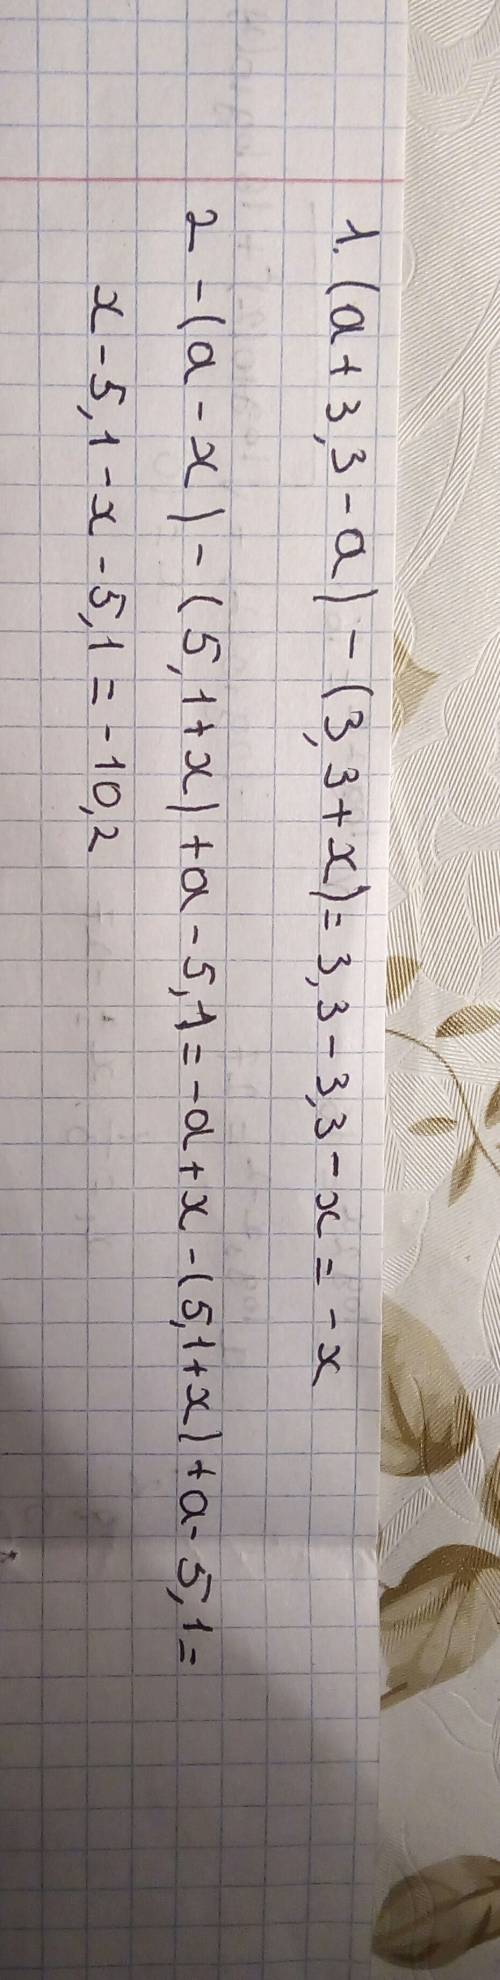 1. (a+3,3-a)-(3,3+x)=3,3-3,3-x=-x
2 -(a-x)-(5,1+x)+a-5,1=-a+x-(5,1+x)+a-5,1=
x-5,1-x-5,1=-10,2